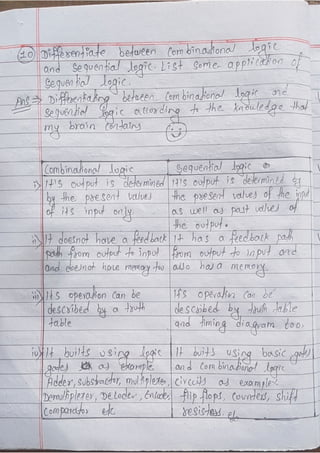 10) Differentiate between Combinational logic
and Sequential logic. List some application of
Sequential logic.
Ans => Differentiating between Combinational logic and
Sequential logic according to the knowledge that
my brain contains
Combinational logic
i) It's output is determined
by the present values
of its input only.
ii) It doesnot have a feedback
path from output to input
and doesnot have memory too
iii) Its operation can be
described by a truth
table
iv) It builts using logic
gates as example
Adder, subtractor, multiplexer,
Demultiplexer, Decoder, Encoder,
Comparator etc
Sequential logic
It's output is determined by
the present values of the input
as well as past values of
the output.
It has a feedback path
from output to input and
also has a memory.
It's operation can be
described by truth table
and timing diagram too.
It builts using basic gates
and combinational logic
circuits as example
flip flops, counters, shift
resistors. etc